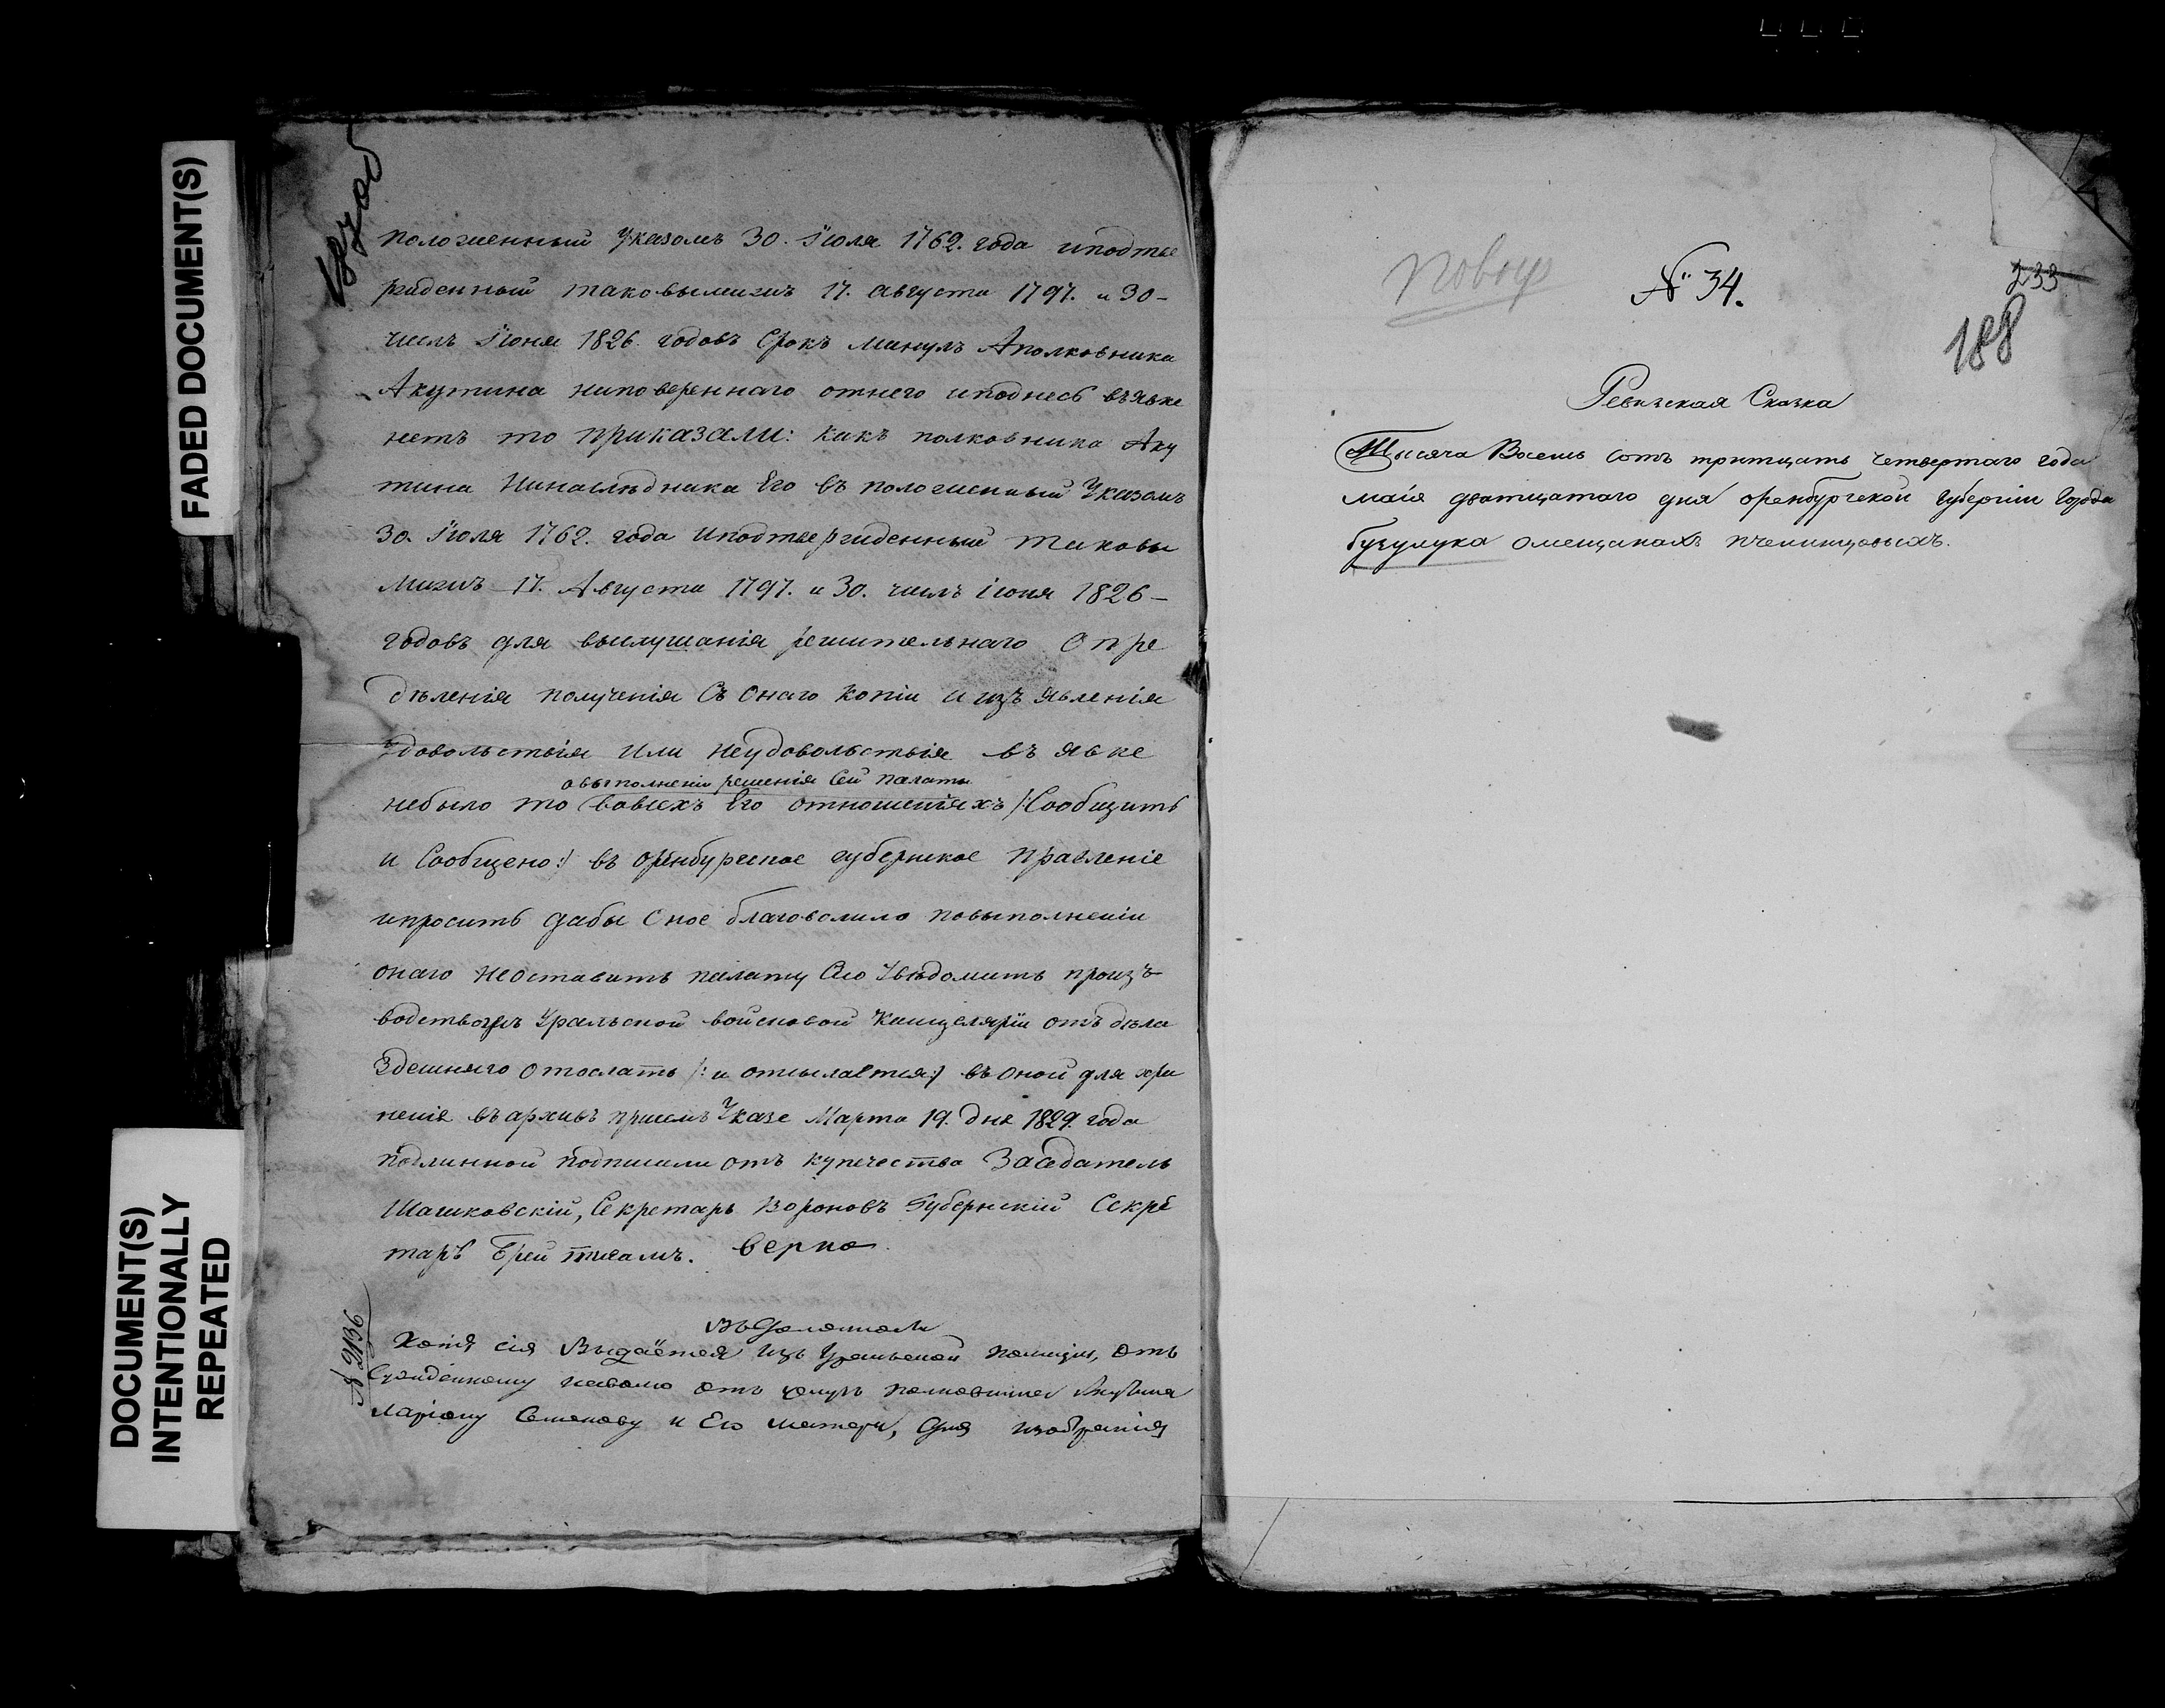 FADED DOCUMENT(S)
DOCUMENT(S)
INTENTIONALLY
REPEATED
положенный Указомъ 30. Іюля 1762. года иподтве
ржденный таковымижъ 17. августа 1797. и 30-
числъ Іюня 1826. годовъ Срокъ минулъ Аполковника
Акутина ниповереннаго отнего иподнесь въявке
нетъ то приказали: какъ полковника Аку
тина Нинаслѣдника Его въ положенный Указомъ
30. Іюля 1762. года Иподтвержденный таковы
мижъ 17. Августа 1797. и 30. числъ іюня 1826-
годовъ для выслушанія решительнаго Опре
дѣленія получения Съ Онаго копіи и изъ явленія
удовольствія Или неудовольствія въ явке
овыполненіи решенія Сей палаты
небыло то вовсехъ Его отношеніяхъ /:Сообщить
и Сообщено:/ въ оренбургское губернское правленіе
ипросить дабы Оное благоволило повыполненіи
онаго неоставить палату Сію Увѣдомить произъ
водствожъ Уральской войсковой Канцеляріи отъ дѣла
Здешняго Отослать /: и отсылается:/ въ оной для хра
ненія въ архивъ присемъ Указе Марта 19. дня 1829. года
Подлинной Подписали отъ купечества Заседатель
Шашковскій, Секретарь Вороновъ Губернскій Секре
тарь верно.
№ 2136
Копія сія Выдаётся Изъ Уральской полиціи, Отъ
отъ полковника Акутина
Ларіону Семенову и Его матери, Для
№ 34.
233
188
Ревизская Сказка
Тысяча Восемь сотъ тритцать четвертаго года
маія дватцатаго дня оренбургской губерніи Города
бузулука омещанахъ пченинцовыхъ.